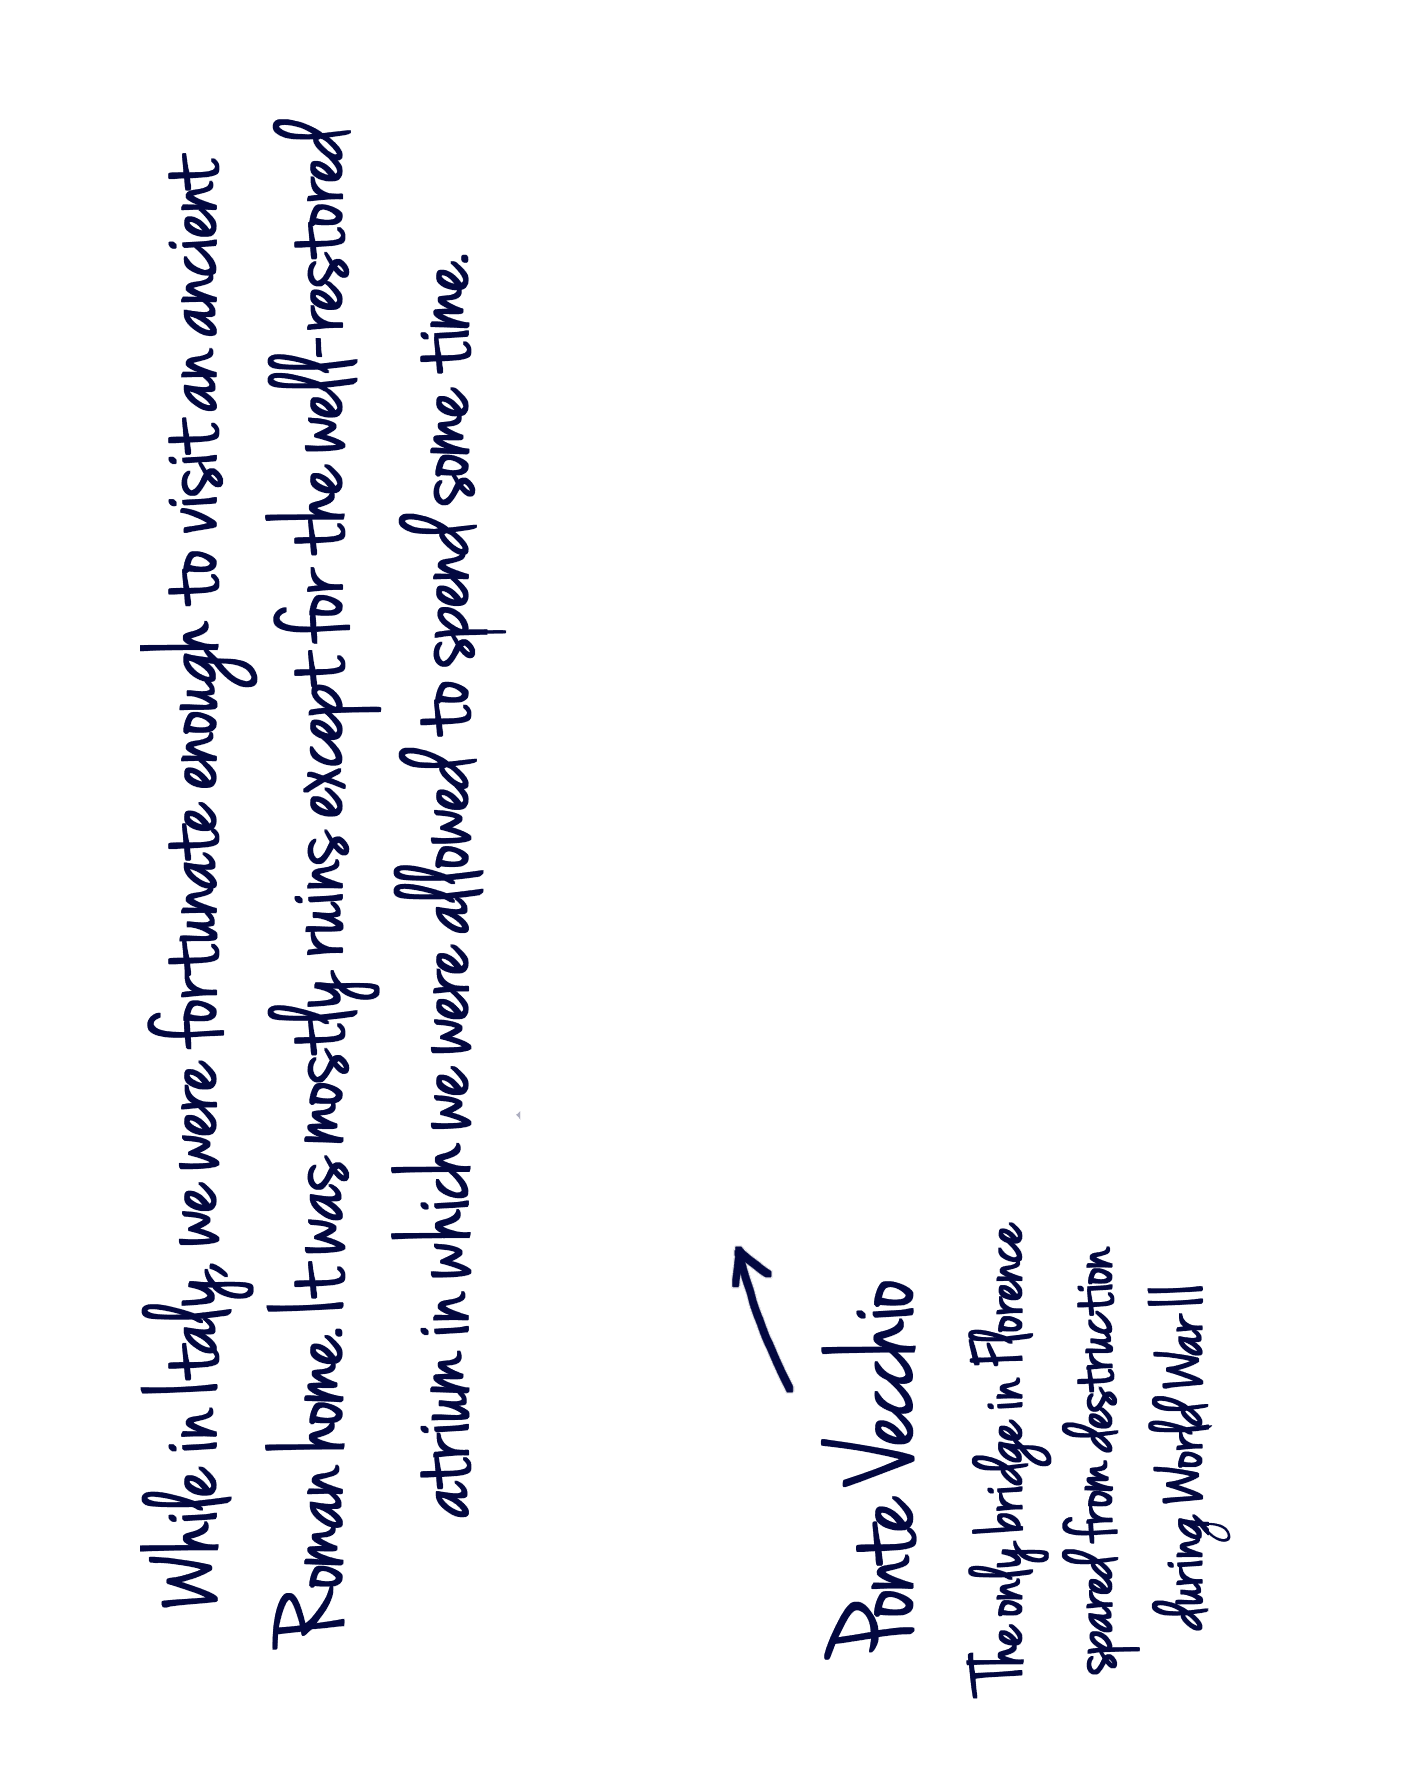 While in Italy, we were fortunate enough to visit an ancient
Roman home. It was mostly ruins except for the well-restored
atrium in which we were allowed to spend some time.
Ponte Vecchio
The only bridge in Florence
spared from destruction
during World War II